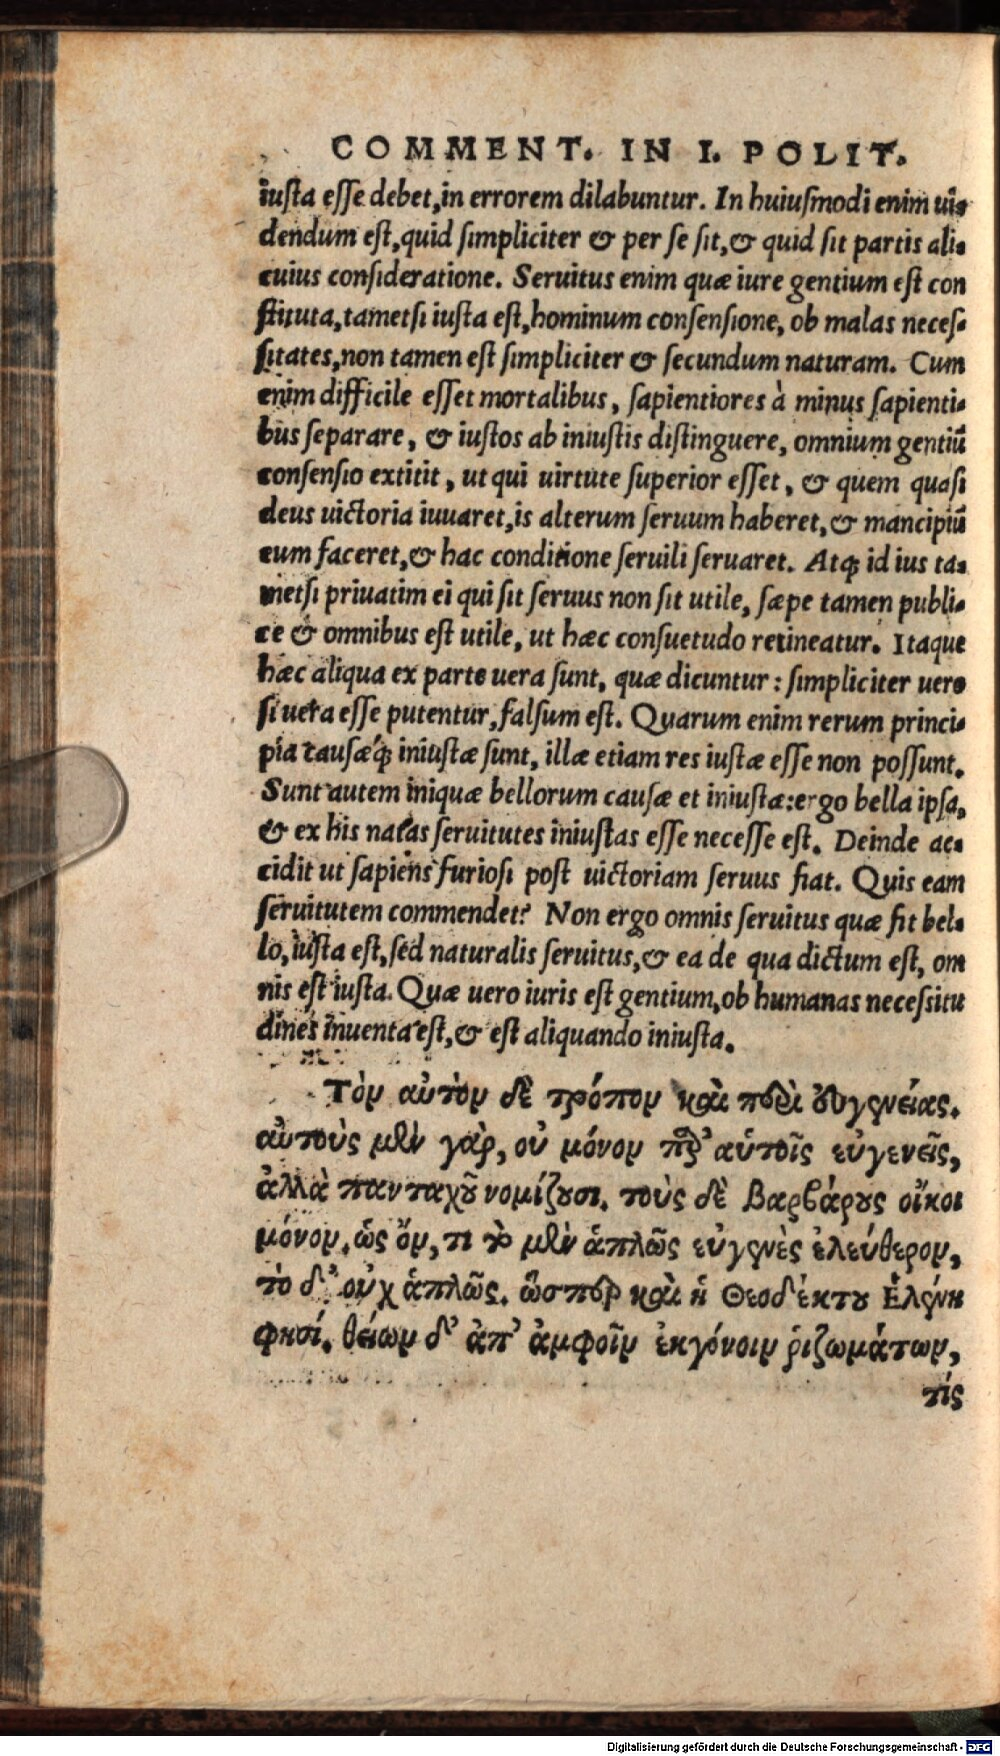 COMMENT. IN I. POLIT.
iusta esse debet, in errorem dilabuntur. In huiusmodi enim ui-
dendum est, quid simpliciter & per se sit, & quid sit partis ali-
cuius consideratione. Seruitus enim quæ iure gentium est con
stituta, tametsi iusta est, hominum consensione, ob malas neces-
sitates, non tamen est simpliciter & secundum naturam. Cum
enim difficile esset mortalibus, sapientiores à minus sapienti-
bus separare, & iustos ab iniustis distinguere, omnium gentiū
consensio extitit, ut qui uirtute superior esset, & quem quasi
deus uictoria iuuaret, is alterum seruum haberet, & mancipiū
eum faceret, & hac conditione seruili seruaret. Atq; id ius ta-
metsi priuatim ei qui sit seruus non sit utile, sæpe tamen publi-
ce & omnibus est utile, ut hæc consuetudo retineatur. Itaque
hæc aliqua ex parte uera sunt, quæ dicuntur: simpliciter uero
si uera esse putentur, falsum est. Quarum enim rerum princi-
pia causæq́; iniustæ sunt, illæ etiam res iustæ esse non possunt.
Sunt autem iniquæ bellorum causæ et iniustæ: ergo bella ipsa,
& ex his natas seruitutes iniustas esse necesse est. Deinde ac-
cidit ut sapiens furiosi post uictoriam seruus fiat. Quis eam
seruitutem commendet? Non ergo omnis seruitus quæ fit bel-
lo, iusta est, sed naturalis seruitus, & ea de qua dictum est, om
nis est iusta. Quæ uero iuris est gentium, ob humanas necessitu
dines inuenta est, & est aliquando iniusta.
Τὸν αὐτὸν δὲ τρόπον καὶ περὶ εὐγενείας.
αὑτοὺς μὲν γὰρ, οὐ μόνον παρ' αὑτοῖς εὐγενεῖς,
ἀλλὰ πανταχοῦ νομίζουσι. τοὺς δὲ βαρβάρους οἴκοι
μόνον. ὡς ὄν, τι τὸ μὲν ἁπλῶς εὐγενὲς ἐλεύθερον,
τὸ δ' οὐχ ἁπλῶς. ὥσπερ καὶ ἡ Θεοδέκτου Ἑλένη
φησί. θείων δ' ἀπ' ἀμφοῖν ἐκγόνοιν ῥιζωμάτων,
τίς
Digitalisierung gefördert durch die Deutsche Forschungsgemeinschaft - DFG